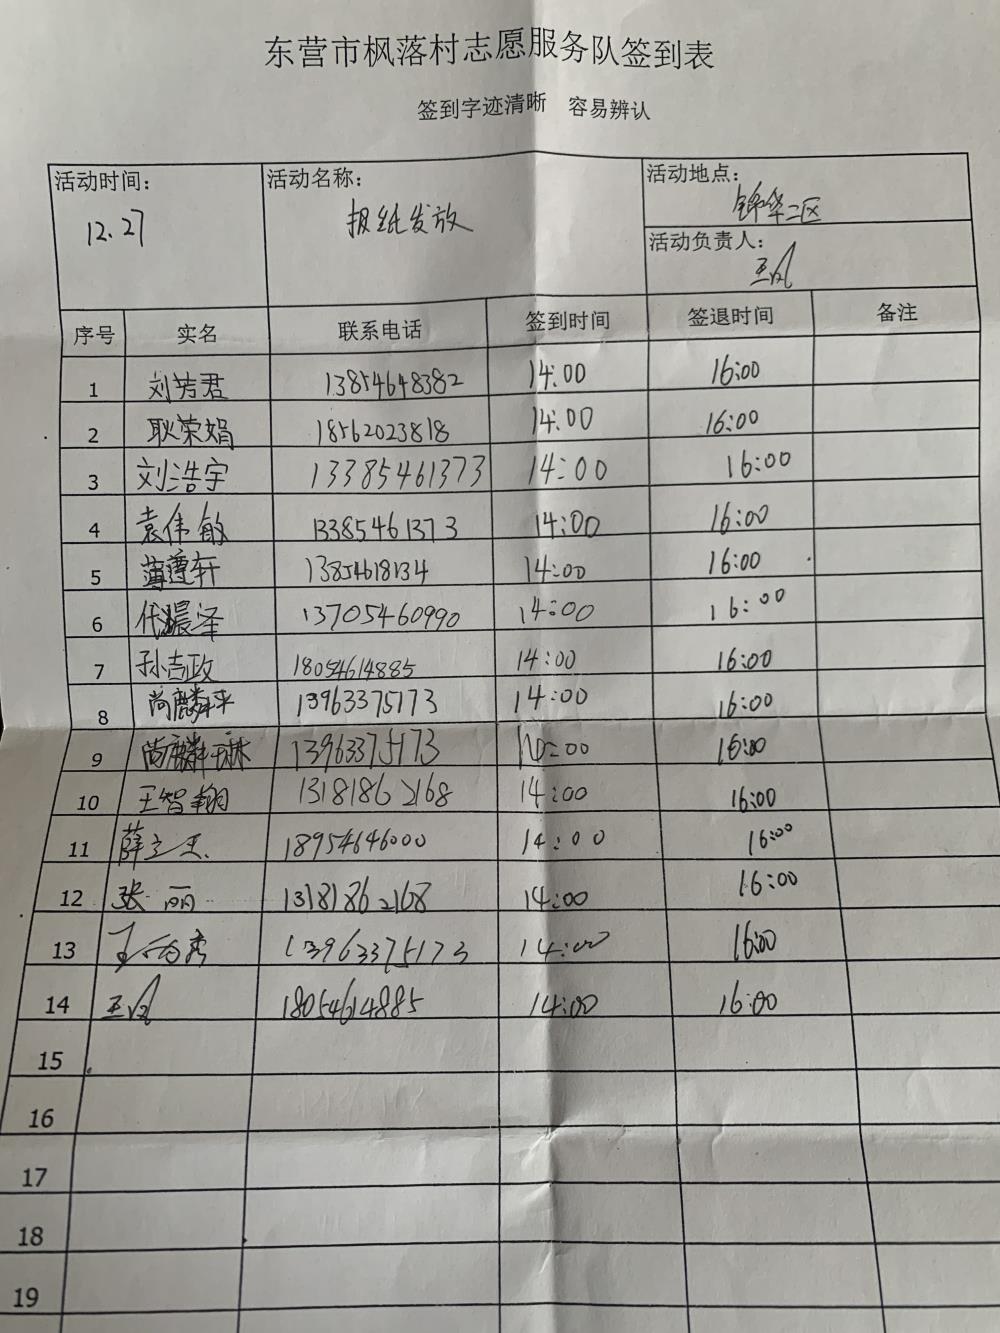 东营市枫落村志愿服务队签到表
签到字迹清晰 容易辨认
活动时间： 活动名称： 活动地点：
12.27 报纸发放 锦华二区
活动负责人：
王凤
序号 实名 联系电话 签到时间 签退时间 备注
1 刘芳君 13854648382 14:00 16:00
2 耿荣娟 18562023818 14:00 16:00
3 刘浩宇 13385461373 14:00 16:00
4 袁伟敏 13385461373 14:00 16:00
5 13854618134 14:00 16:00
6 代晨泽 13705460990 14:00 16:00
7 孙吉政 18054614885 14:00 16:00
8 尚麟 13963375173 14:00 16:00
9 尚麟琳 13963375173 16:00
10 王智翔 13181862168 14:00 16:00
11 薛立王 18954646000 14:00 16:00
12 张丽 13181862168 14:00 16:00
13 13963375173 14:00 16:00
14 王凤 18054614885 14:00 16:00
15
16
17
18
19